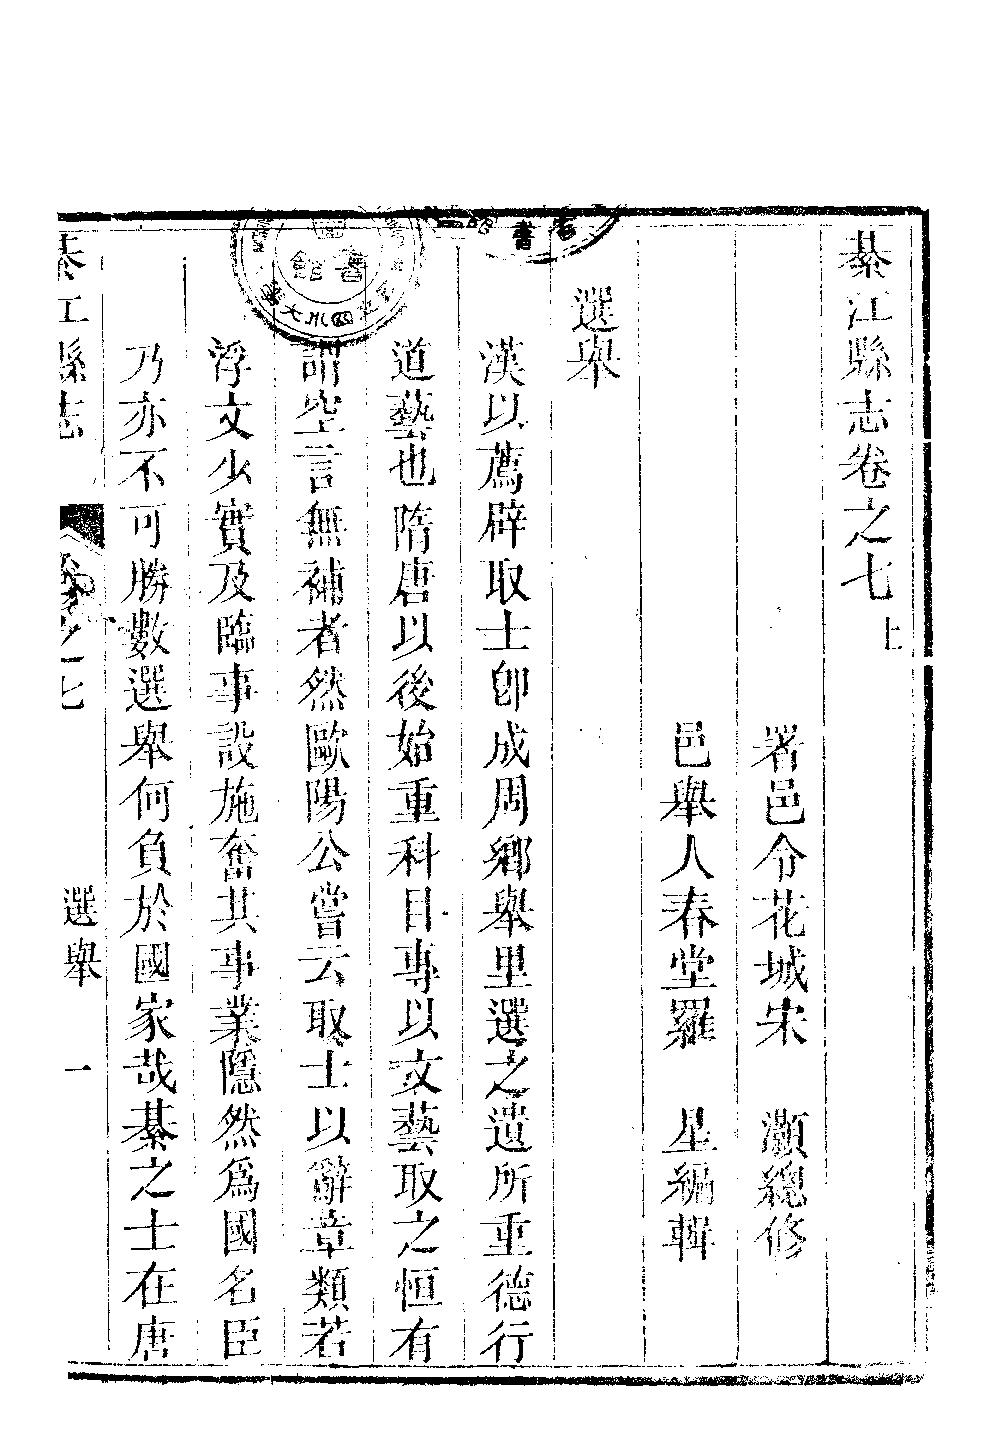 綦江縣志卷之七上
署邑令花城宋　灝總修
邑舉人春堂羅　星編輯
選舉
漢以薦辟取士卽成周鄉舉里選之遺所重德行
道藝也隋唐以後始重科目專以文藝取之恒有
謂空言無補者然歐陽公嘗云取士以辭章類若
浮文少實及臨事設施奮其事業隱然爲國名臣
乃亦不可勝數選舉何負於國家哉綦之士在唐
綦江縣志
卷之七
選舉
一